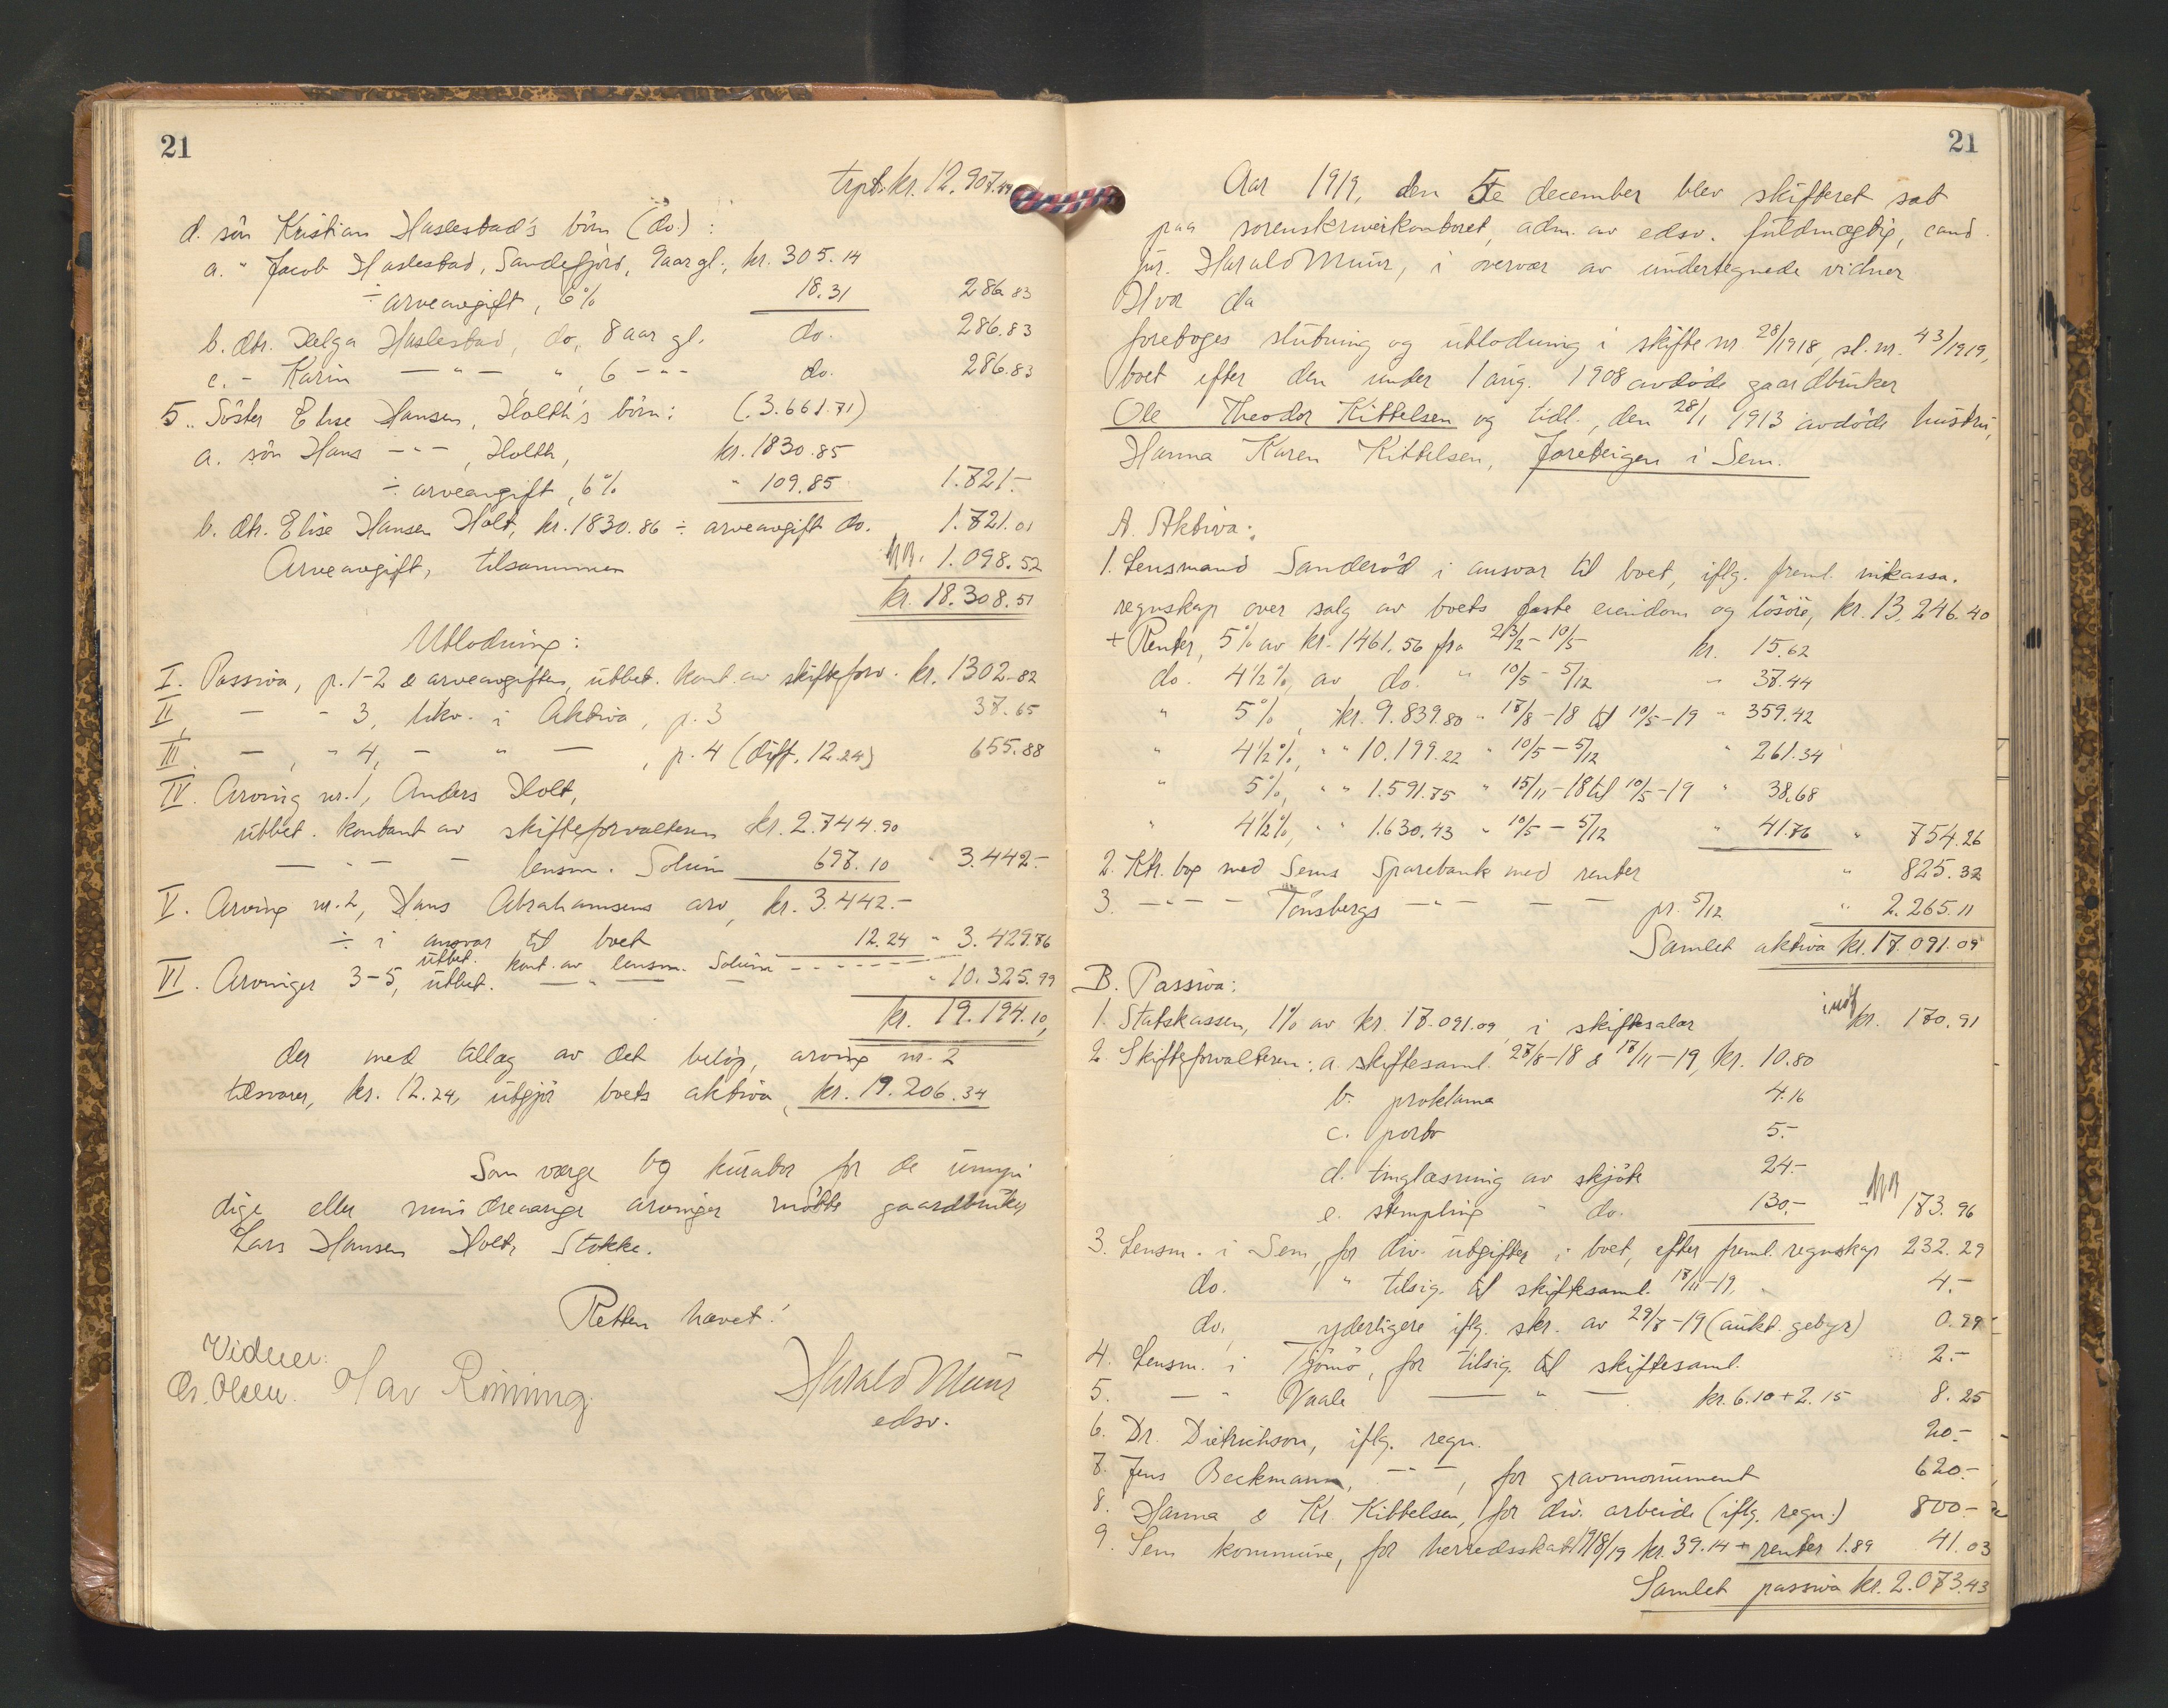 21
trpt. kr. 12.907.49
d. sön Kristian Haslestad's börn (do.) :
a. " Jacob Haslestad, Sandefjord, 9 aar gl., kr. 305.14
÷ arveavgift, 6% 18.31 286.83
b. dtr. Helga Haslestad, do, 8 aar gl. do. 286.83
c. - Karin — " — , " , 6 - " - do. 286.83
5. Söster Elise Hansen, Holth's börn: (3.661.71)
a. sön Hans - " - , Holth, kr. 1830.85
÷ arveavgift, 6% " 109.85 1.721.-
b. dtr. Elise Hansen Holt, kr. 1830.86 ÷ arveavgift do. 1.721.01
Arveavgift, tilsammen 1.098.52
kr. 18.308.51
Utlodning:
I. Passiva, p. 1-2 & arveavgiften, utbet. kont. av skifteforv. kr. 1302.82
II, — " 3, likv. i Aktiva, p. 3 37.65
III. — , " 4, - " — , p. 4 (diff. 12.24) 655.88
IV. Arving nr. 1, Anders Holt,
utbet. kontant av skifteforvalteren kr. 2.744.90
— " — - lensm. Solum 697.10 " 3.442.-
V. Arving nr. 2, Hans Abrahamsens arv, kr. 3.442.-
÷ i ansvar til boet 12.24 " 3.429.76
utbet. kont. av lensm. Solum - - - - - -
VI. Arvinger 3-5, utbet. — " — — " 10.325.99
kr. 19.194.10,
der med tillæg av det belöp, arving nr. 2
tilsvarer, kr. 12.24, utgjör boets aktiva, kr. 19.206.34
Som værge og kurator for de umyn
dige eller mindreaarige arvinger mötte gaardbruker
Lars Hansen Holt, Stokke.
Retten hævet!
Vidner:
Chr. Olsen. Olav Rönning. Harald Muur
edsv.
21
Aar 1919, den 5te december blev skifteret sat
paa sorenskriverkontoret, adm. av edsv. fuldmægtig, cand.
jur. Harald Muur, i overvær av undertegnede vidner
Hvor da
foretoges slutning og utlodning i skifte nr. 28/1918, sl. nr. 43/1919,
boet efter den under 1 aug. 1908 avdöde gaardbruker
Ole Theodor Kittelsen og tidl., den 28/1 1913 avdöde hustru,
Hanna Karen Kittelsen, Jareteigen i Sem.
A. Aktiva:
1. Lensmand Sanderöd i ansvar til boet, iflg. freml. inkasso-
regnskap over salg av boets faste eiendom og lösöre, kr. 13.246.40
+ Renter, 5% av kr. 1461.56 fra 23/2 - 10/5 kr. 15.62
do. 4½%, av do. " 10/5 - 5/12 " 37.44
" 5%, kr. 9.839.80 " 17/8-18 til 10/5-19 " 359.42
" 4½%, " " 10.199.22 " 10/5 - 5/12 " 261.34
" 5%, " " 1.591.75 " 15/11-18 til 10/5-19 " 38.68
" 4½%, " " 1.630.43 " 10/5 - 5/12 " 41.76 " 754.26
2. Ktr. bog med Sems Sparebank med renter " 825.32
3. — " — - Tönsbergs — " — — — pr. 5/12 " 2.265.11
Samlet aktiva kr. 17.091.09
B. Passiva:
1. Statskassen, 1% av kr. 17.091.09, i skiftesalær kr. 170.91
2. Skifteforvalteren: a. skiftesaml. 27/8-18 & 17/11-19, kr. 10.80
b. proklama 4.16
c. porto 5.-
d. tinglæsning av skjöte 24.-
e. stempling " do. 130.- " 173.96
3. Lensm. i Sem, for div. utgifter i boet, efter freml. regnskap 232.29
do. " tilsig. til skiftesaml. 17/11-19, 4.-
do, yderligere iflg. skr. av 29/8-19 (aukt. gebyr) 0.99
4. Lensm. i Tjömö, for tilsig. til skiftesaml. 2.-
5. — " Vaale — " — kr. 6.10 + 2.15 8.25
6. Dr. Dietrichson, iflg. regn. 20.-
7. Jens Beckmann, - " - , for gravmonument 620.-
8. Hanna & Kr. Kittelsen, for div. arbeide (iflg. regn.) 800.-
9. Sem kommune, for herredsskat 1918/19 kr. 39.14 + renter 1.89 41.03
Samlet passiva kr. 2.073.43